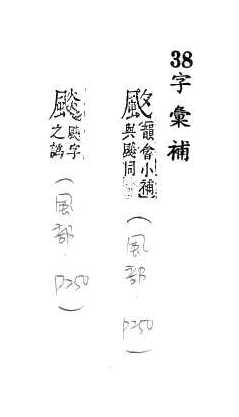 38字彙補
韻會小補
與同
(風部 P250)
字
之譌
(風部 P250)